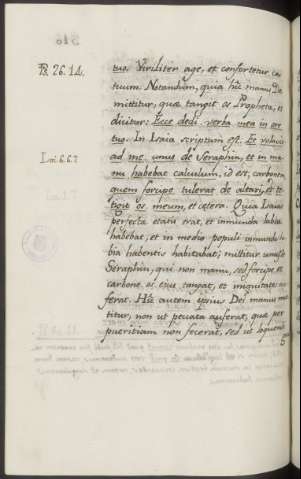 Ps. 26. 14.
tuo. Viriliter age, et confortetur cor
tuum. Notandum, quia hîc manus Dei
mittitur, quæ tangit os Prophetæ, et
dicitur: Ecce dedi verba mea in ore
tuo. In Isaia scriptum est: Et volavit
Isai. 6. 6. 7.
ad me unus de Seraphin, et in ma-
nu habebat calculum, id est, carbonem,
quem forcipe tulerat de altari, et te-
tigit os meum, et cetera. Quia Isaias
perfecta etatis erat, et inmunda labia
habebat, et in medio populi inmunda la-
bia habentis habitabat; mittitur unus de
Seraphin, qui non manu, sed forcipe, et
carbone os eius tangat, et iniquitatem au-
ferat. Hîc autem ipsius Dei manus mit-
titur, non ut peccata auferat, quæ per
pueritiam non fecerat, sed ut loquendi